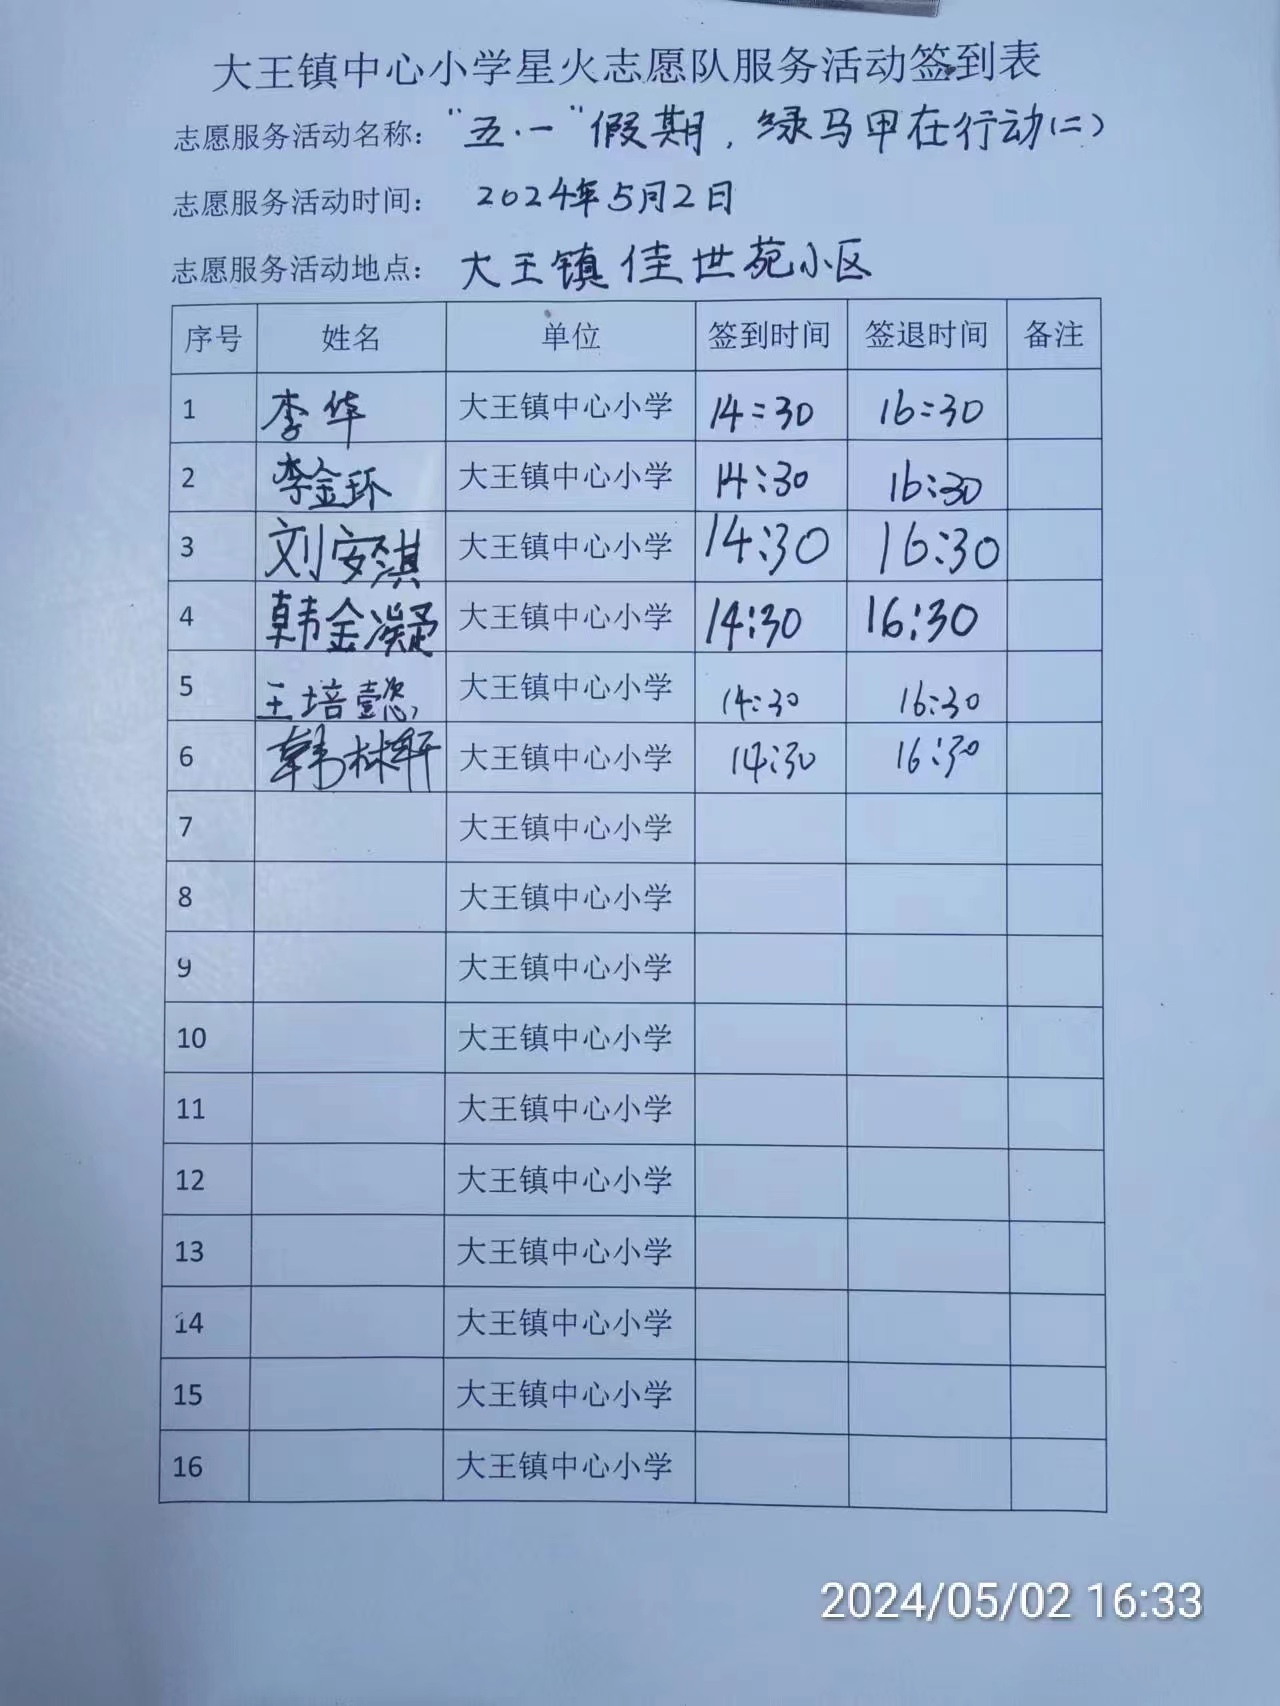 大王镇中心小学星火志愿队服务活动签到表
志愿服务活动名称：“五·一”假期，绿马甲在行动(二)
志愿服务活动时间：2024年5月2日
志愿服务活动地点：大王镇佳世苑小区
序号 姓名 单位 签到时间 签退时间 备注
1 李华 大王镇中心小学 14:30 16:30
2 李金环 大王镇中心小学 14:30 16:30
3 刘安淇 大王镇中心小学 14:30 16:30
4 韩金凝 大王镇中心小学 14:30 16:30
5 王培懿 大王镇中心小学 14:30 16:30
6 韩林轩 大王镇中心小学 14:30 16:30
7 大王镇中心小学
8 大王镇中心小学
9 大王镇中心小学
10 大王镇中心小学
11 大王镇中心小学
12 大王镇中心小学
13 大王镇中心小学
14 大王镇中心小学
15 大王镇中心小学
16 大王镇中心小学
2024/05/02 16:33